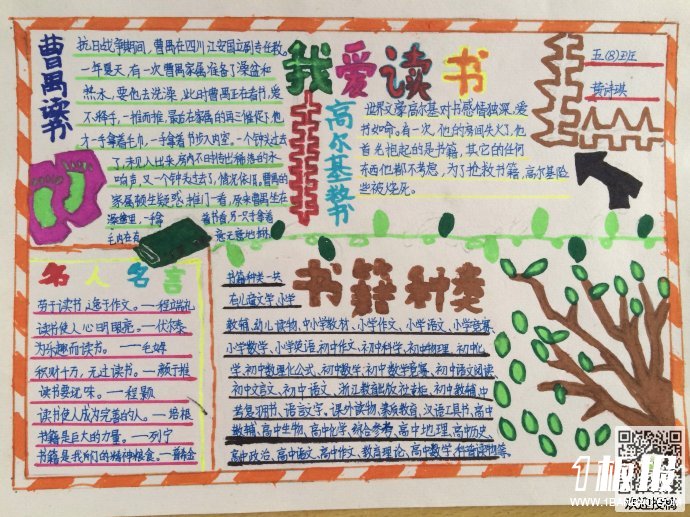 我爱读书
五(8)班
黄诗琪
曹禺读书
抗日战争期间，曹禺在四川江安国立剧专任教。
一年夏天，有一次曹禺家属准备了澡盆和
热水，要他去洗澡，此时曹禺正在看书，爱
不释手，一推再推，最后在家属的再三催促下，他
才一手拿着毛巾，一手拿着书步入内室。一个钟头过去
了，未见人出来，房内不时传出稀落的水
响声，又一个钟头过去了，情况依旧。曹禺的
家属顿生疑惑，推门一看，原来曹禺坐在
澡盆里，一手拿着书看，另一只手拿着
毛巾在有意无意地拍水
高尔基救书
世界文豪高尔基对书感情独深，爱
书如命。有一次，他的房间失火了，他
首先抱起的是书籍，其它的任何
东西他都不考虑，为了抢救书籍，高尔基险
些被烧死。
名人名言
劳于读书，逸于作文。——程端礼
读书使人心明眼亮。——伏尔泰
为乐趣而读书。——毛姆
积财千万，无过读书。——颜之推
读书要玩味。——程颢
读书使人成为完善的人。——培根
书籍是巨大的力量。——列宁
书籍种类
书籍种类一共
有儿童文学、小学
教辅、幼儿读物、中小学教材、小学作文、小学语文、小学竞赛、
小学数学、小学英语、初中作文、初中科学、初中物理、初中化
学、初中数理化公式、初中数学、初中数学竞赛、初中语文阅读
初中文言文、初中语文、浙江教育出版社专柜、初中教辅、中
考复习用书、语言文字、课外读物、素质教育、汉语工具书、高中
教辅、高中生物、高中化学、综合参考、高中地理、高中历史、
高中政治、高中语文、高中作文、教育理论、高中数学、科普读物等。
1板报
欢迎投稿